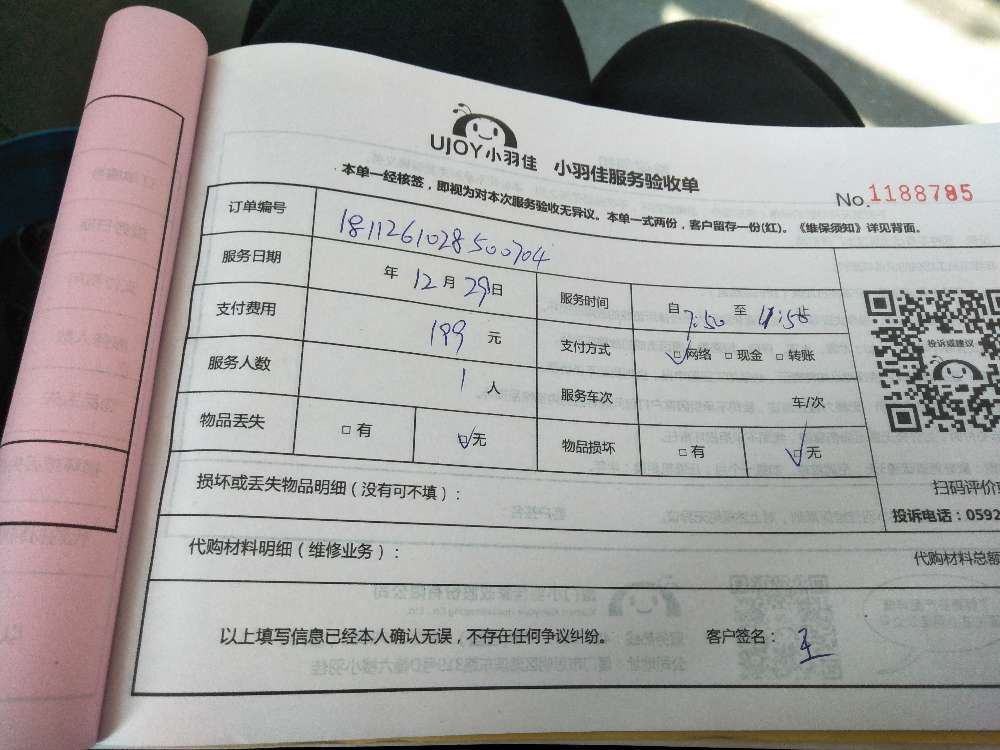 UJOY小羽佳 小羽佳服务验收单
No.1188785
本单一经核签，即视为对本次服务验收无异议。本单一式两份，客户留存一份(红)。《维保须知》详见背面。
订单编号 1811261028500704
服务日期 年 12月 29日 服务时间 自 7:50 至 11:58
支付费用 199 元 支付方式 □网络 □现金 □转账
服务人数 1 人 服务车次 车/次
物品丢失 □有 □无 物品损坏 □有 □无
投诉或建议
扫码评价
损坏或丢失物品明细（没有可不填）：
投诉电话：0592
代购材料明细（维修业务）：
代购材料总额
以上填写信息已经本人确认无误，不存在任何争议纠纷。 客户签名：王